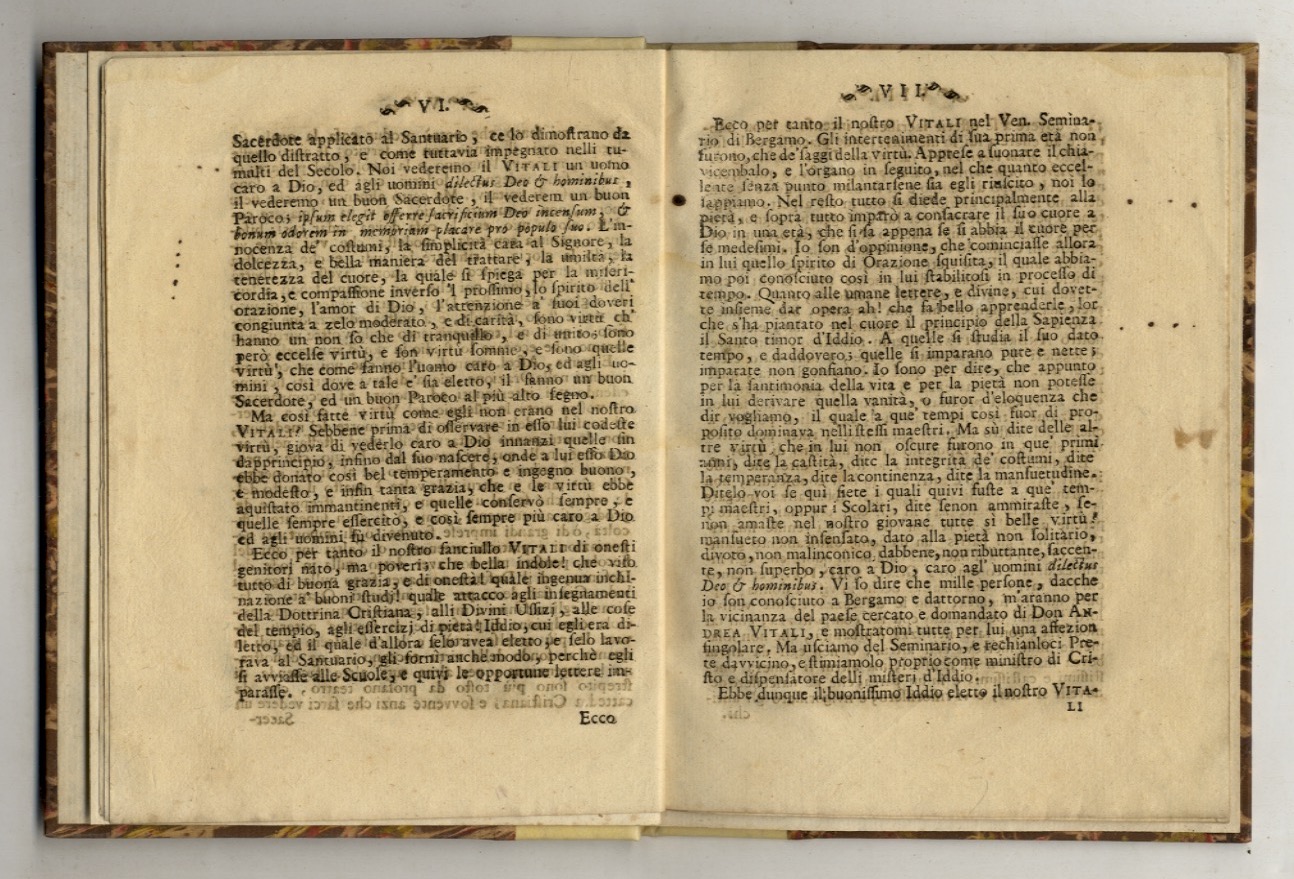 VI.
Sacerdote applicato al Santuario, ce lo dimoſtrano da
quello diſtratto, e come tuttavia impegnato nelli tu-
multi del Secolo. Noi vederemo il VITALI un uomo
caro a Dio, ed agli uomini dilectus Deo & hominibus,
il vederemo un buon Sacerdote, il vederem un buon
Paroco; ipſum elegit offerre ſacrificium Deo incenſum, &
bonum odorem in memoriam placare pro populo ſuo. L'in-
nocenza de' coſtumi, la ſimplicità cara al Signore, la
dolcezza, e bella maniera del trattare, la umiltà, la
tenerezza del cuore, la quale ſi ſpiega per la miſeri-
cordia, e compaſſione inverſo 'l proſſimo, lo ſpirito dell'
orazione, l'amor di Dio, l'attenzione a' ſuoi doveri
congiunta a zelo moderato, e di carità, ſono virtù ch'
hanno un non ſo che di tranquillo, e di unito; ſono
però eccelſe virtù, e ſon virtù ſomme, e ſono quelle
virtù, che come fanno l'uomo caro a Dio, ed agli uo-
mini, così dove a tale e' ſia eletto, il fanno un buon
Sacerdote, ed un buon Paroco al più alto ſegno.
Ma così fatte virtù come egli non erano nel noſtro
VITALI? Sebbene prima di oſſervare in eſſo lui codeſte
virtù, giova di vederlo caro a Dio innanzi quelle ſin
dapprincipio, infino dal ſuo naſcere, onde a lui eſſo Dio
ebbe donato così bel temperamento e ingegno buono,
e modeſto, e infin tanta grazia, che e le virtù ebbe
aquiſtato immantinenti, e quelle conſervò ſempre, e
quelle ſempre eſſercitò, e così ſempre più caro a Dio
ed agli uomini fu divenuto.
Ecco per tanto il noſtro fanciullo VITALI di oneſti
genitori nato, ma poveri; che bella indole! che viſo
tutto di buona grazia, e di oneſtà! quale ingenua inchi-
nazione a' buoni ſtudj! quale attacco agli inſegnamenti
della Dottrina Criſtiana, alli Divini Uffizj, alle coſe
del tempio, agli eſſercizj di pietà! Iddio, cui egli era di-
letto, ed il quale d'allora ſelo avea eletto, e ſelo lavo-
rava al Santuario, gli fornì anche modo, perchè egli
ſi avviaſſe alle Scuole, e quivi le opportune lettere im-
paraſſe.
Ecco
VII.
Ecco per tanto il noſtro VITALI nel Ven. Semina-
rio di Bergamo. Gli intertenimenti di ſua prima età non
furono, che de' ſaggi della virtù. Appreſe a ſuonare il chia-
vicembalo, e l'organo in ſeguito, nel che quanto eccel-
lente ſenza punto milantarſene ſia egli riuſcito, noi lo
ſappiamo. Nel reſto tutto ſi diede principalmente alla
pietà, e ſopra tutto imparò a conſacrare il ſuo cuore a
Dio in una età, che ſi ſa appena ſe ſi abbia il cuore per
ſe medeſimi. Io ſon d'oppinione, che cominciaſſe allora
in lui quello ſpirito di Orazione ſquiſita, il quale abbia-
mo poi conoſciuto così in lui ſtabilitoſi in proceſſo di
tempo. Quanto alle umane lettere, e divine, cui dovet-
te inſieme dar opera ah! che fa bello apprenderle, lor
che s'ha piantato nel cuore il principio della Sapienza
il Santo timor d'Iddio. A quelle ſi ſtudia il ſuo dato
tempo, e daddovero; quelle ſi imparano pure e nette;
imparate non gonfiano. Io ſono per dire, che appunto
per la ſantimonia della vita e per la pietà non poteſſe
in lui derivare quella vanità, o furor d'eloquenza che
dir vogliamo, il quale a que' tempi così fuor di pro-
poſito dominava nelli ſteſſi maeſtri. Ma sù dite delle al-
tre virtù, che in lui non oſcure furono in que' primi
anni, dite la caſtità, dite la integrità de' coſtumi, dite
la temperanza, dite la continenza, dite la manſuetudine.
Ditelo voi ſe qui ſiete i quali quivi fuſte a que' tem-
pi maeſtri, oppur i Scolari, dite ſenon ammiraſte, ſe-
non amaſte nel noſtro giovane tutte si belle virtù?
manſueto non inſenſato, dato alla pietà non ſolitario,
divoto, non malinconico, dabbene, non ributtante, ſaccen-
te, non ſuperbo, caro a Dio, caro agl' uomini dilectus
Deo & hominibus. Vi ſo dire che mille perſone, dacche
io ſon conoſciuto a Bergamo e dattorno, m'aranno per
la vicinanza del paeſe cercato e domandato di Don AN-
DREA VITALI, e moſtratomi tutte per lui una affezion
ſingolare. Ma uſciamo del Seminario, e rechianloci Pre-
te davvicino, e ſtimiamolo proprio come miniſtro di Cri-
ſto e diſpenſatore delli miſterj d'Iddio.
Ebbe dunque il buoniſſimo Iddio eletto il noſtro VITA-
LI